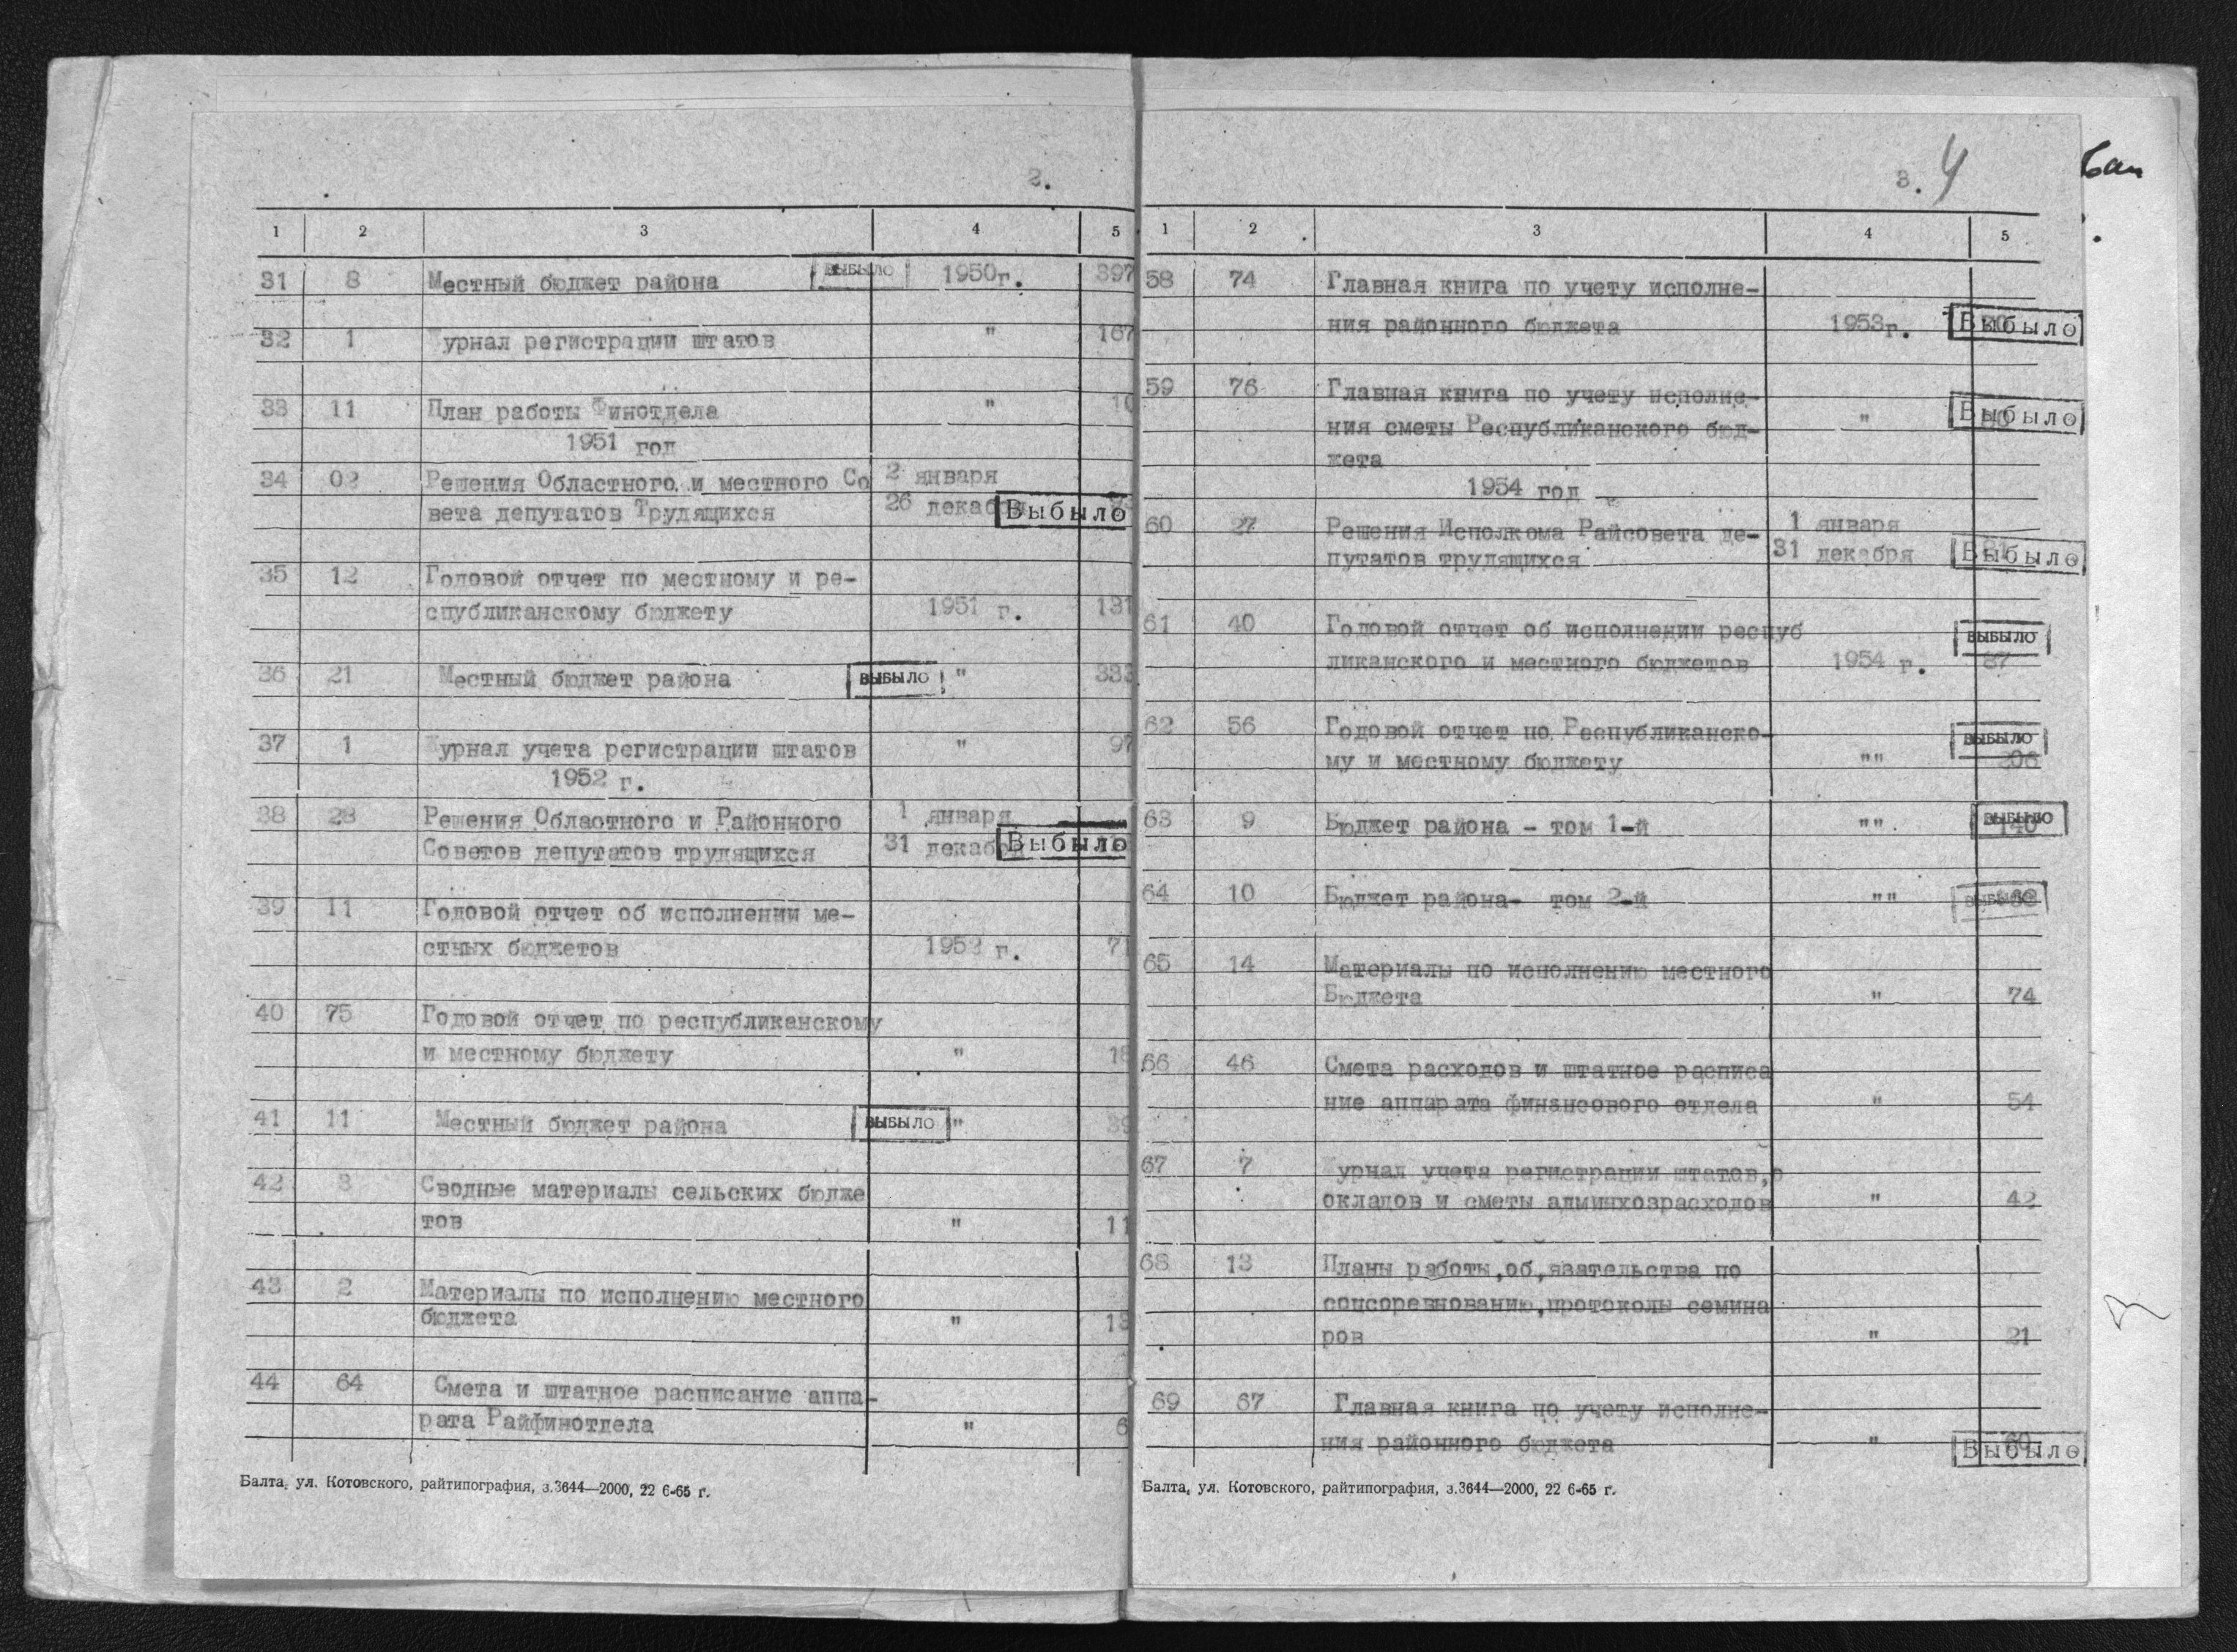 2.
1 2 3 4 5
31 8 Местный бюджет района ВЫБЫЛО 1950г. 397
32 1 урнал регистрации штатов " 167
33 11 План работы Финотдела " 10
1951 год
34 02 Решения Областного и местного Со 2 января
вета депутатов Трудящихся 26 декабря Выбыло
35 12 Годовой отчет по местному и ре-
спубликанскому бюджету 1951 г. 131
36 21 Местный бюджет района ВЫБЫЛО " 333
37 1 урнал учета регистрации штатов " 97
1952 г.
38 28 Решения Областного и Районного 1 января
Советов депутатов трудящихся 31 декабря Выбыло
39 11 Годовой отчет об исполнении ме-
стных бюджетов 1952 г. 71
40 75 Годовой отчет по республиканскому
и местному бюджету " 18
41 11 Местный бюджет района ВЫБЫЛО " 39
42 3 Сводные материалы сельских бюдже
тов " 11
43 2 Материалы по исполнению местного
бюджета " 13
44 64 Смета и штатное расписание аппа-
рата Райфинотдела " 6
Балта, ул. Котовского, райтипография, з.3644—2000, 22 6-65 г.
3. 4
1 2 3 4 5
58 74 Главная книга по учету исполне-
ния районного бюджета 1953г. Выбыло
59 76 Главная книга по учету исполне-
ния сметы Республиканского бюд- " Выбыло
жета
1954 год
60 27 Решения Исполкома Райсовета де- 1 января
путатов трудящихся 31 декабря Выбыло
61 40 Годовой отчет об исполнении респуб ВЫБЫЛО
ликанского и местного бюджетов 1954 г. 87
62 56 Годовой отчет по Республиканско- ВЫБЫЛО
му и местному бюджету "" 206
63 9 Бюджет района - том 1-й "" ВЫБЫЛО 140
64 10 Бюджет района- том 2-й "" ВЫБЫЛО
65 14 Материалы по исполнению местного
Бюджета " 74
66 46 Смета расходов и штатное расписа
ние аппарата финансового отдела " 54
67 7 урнал учета регистрации штатов,о
окладов и сметы админхозрасходов " 42
68 13 Планы работы,об,язательства по
соцсоревнованию,протоколы семина
ров " 21
69 67 Главная книга по учету исполне-
ния районного бюджета " Выбыло
Балта, ул. Котовского, райтипография, з.3644—2000, 22 6-65 г.